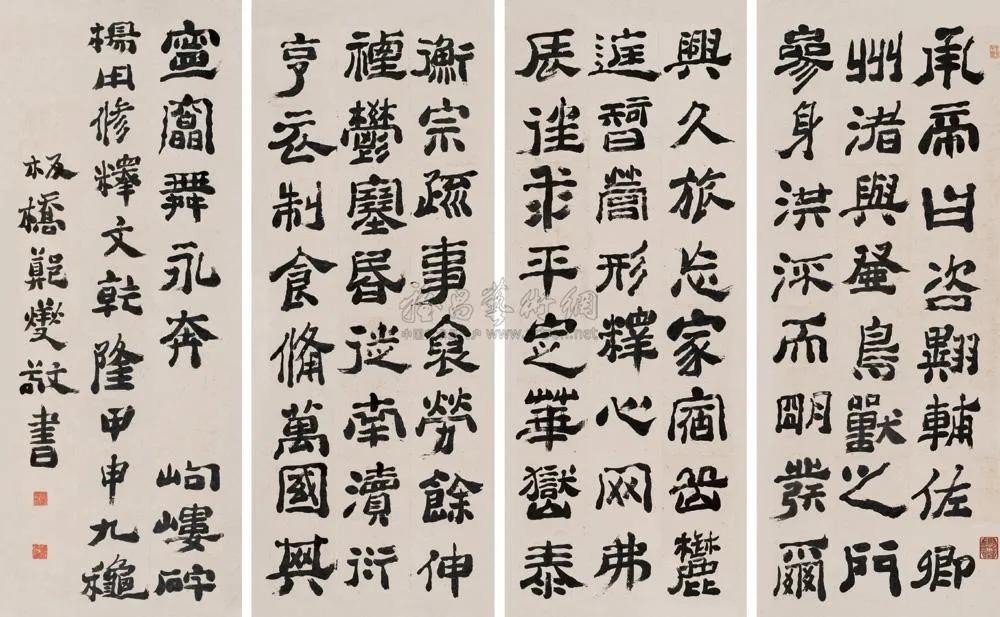 承帝曰咨翼輔佐卿
州渚與登鳥獸之門
參身洪流而明發爾
興久旅忘家宿岳麓
庭智營形釋心网弗
辰往求平定華嶽泰
衡宗疏事裒勞餘伸
禋鬱塞昏徙南瀆衍
亨衣制食備萬國其
寧竄舞永奔 岣嶁碑
楊用修釋文乾隆甲申九穐
板橋鄭燮敬書